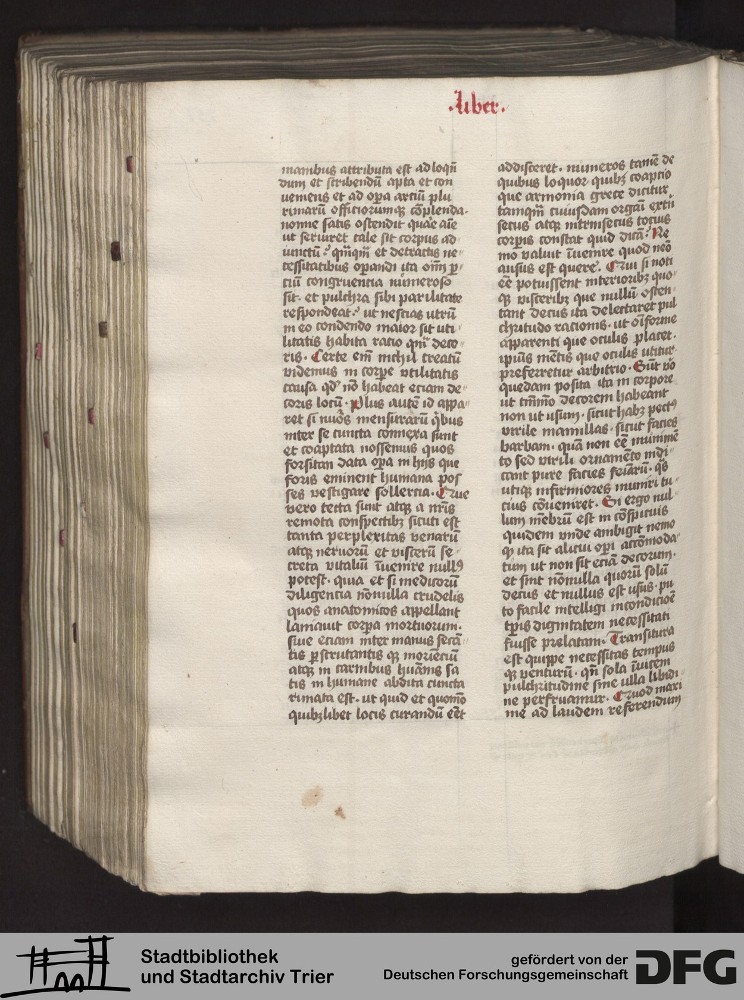 .Liber.
manibus attributa est ad loqn̄
dum et scribendū apta et con
ueniens et ad oꝑa artiū plu
rimarū officiorumqꝫ cōplenda.
nonne satis ostendit quāe aīe
ut seruiret tale sit corpus ad
iunctū? qm̄qm̄ et detractis ne
cessitatibus oꝑandi ita oīm ꝑ
ciū congruentia nūmeroso
sit. et pulchra sibi parilitate
respondeat. ut nescias utrū
in eo condendo maior sit uti
litatis habita racio qm̄ deco
ris. Certe em̄ nichil creatū
videmus in corꝑe vtilitatis
causa qđ nō habeat eciam de
coris locū. Plus autē id appa
ret si nūos mensurarū q̄bus
inter se cuncta connexa sunt
et coaptata nossemus quos
forsitan data oꝑa in hijs que
foris eminent humana pos
ses vestigare sollercia. Que
vero tecta sunt atqꝫ a nr̄is
remota conspectibꝫ sicuti est
tanta perplexitas venarū
atqꝫ neruorū et viscerū se
creta vitaliū īuenire nullꝰ
potest. quia et si medicorū
diligencia nōnulla crudelis
quos anatomicos appellant
laniauit corꝑa mortuorum.
siue eciam inter manus secā
tis ꝑscrutantis qꝫ moriēciū
atqꝫ in carnibus huānis sa
tis in humane abdita cuncta
rimata est. ut quid et quomō
quibꝫlibet locis curandū eēt
addisceret. numeros tamē de
quibus loquor quibꝫ coaptio
que armonia grece dicitur
tamqm̄ cuiusdam organi extri
secus atqꝫ intrinsecus tocius
corpꝛis constat quid dicā? Ne
mo valuit īuenire quod neō
ausus est querē. Qui si noti
eē potuissent interioribꝫ quo
qꝫ visceribꝫ que nullū osten
tant decus ita delectaret pul
chritudo racionis. ut oīforme
apparenti que oculis placet.
ipīus mētis que oculis utitur
preferretur arbitrio. Sūt ꝟo
quedam posita ita in corpore
ut tm̄mō decorem habeant
non ut usum. sicut habꝫ pectꝰ
virile mamillas. sicut facies
barbam. quā non eē munimē
to sed virili ornamēto indi
cant pure facies feīarū. q̄s
utiqꝫ infirmiores muniri tu
cius cōueniret. Si ergo nul
lum mēbrū est in cōspicuis
quidem vnde ambigit nemo
qđ ita sit alicui oꝑi accōmoda
tum ut non sit eciā decorum.
et sint nōnulla quorū solū
decus et nullus est usus. pu
to facile intelligi in condicioē
corꝑis dignitatem necessitati
fuisse prelatam. Transitura
est quippe necessitas tempus
qꝫ venturū. qn̄ sola īuicem
pulchritudine sine ulla libidi
ne perfruamur. Quod maxi
me ad laudem referendum
Stadtbibliothek
und Stadtarchiv Trier
gefördert von der
Deutschen Forschungsgemeinschaft
DFG